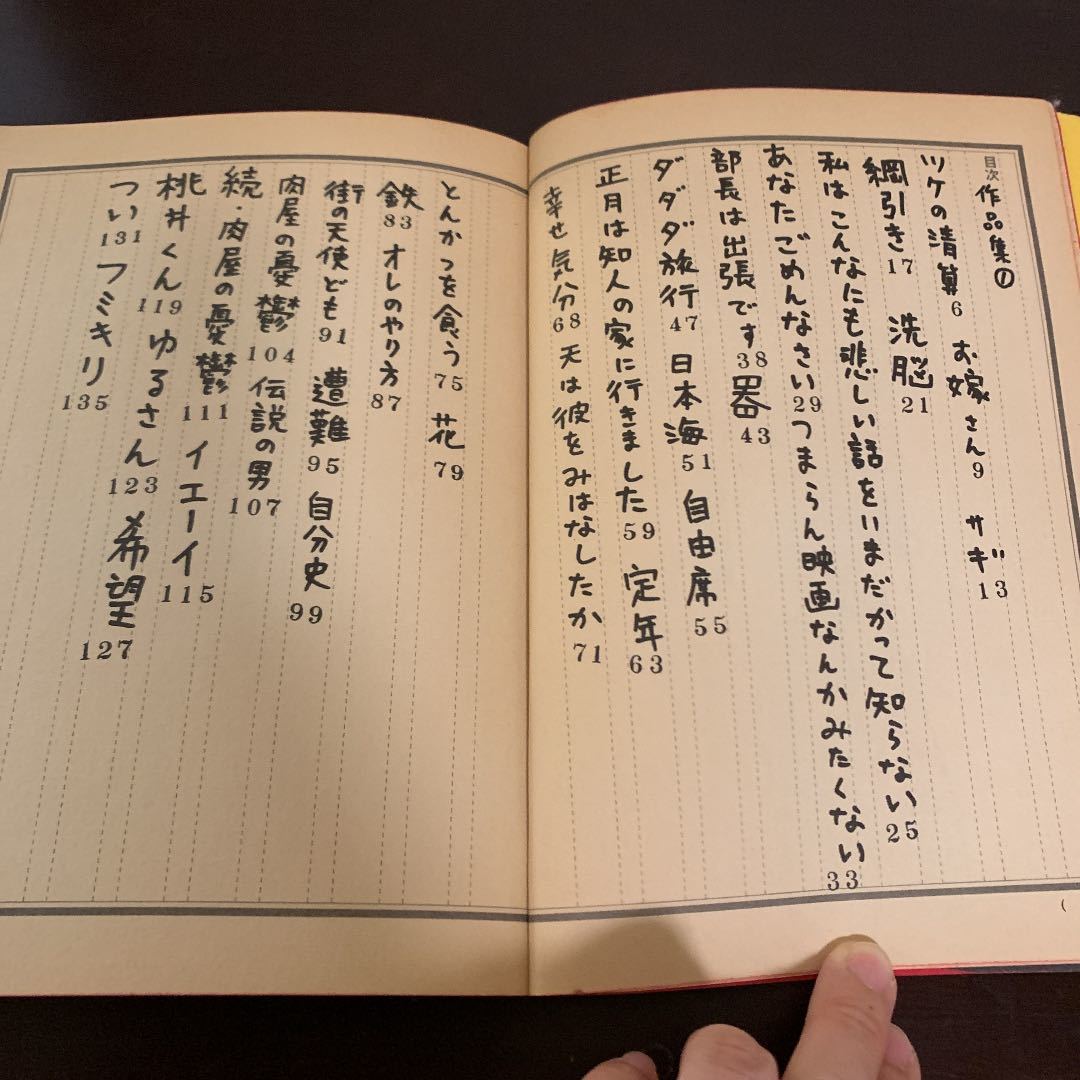 目次 作品集①
ツケの清算6 お嫁さん9 サギ13
綱引き17 洗脳21
私はこんなにも悲しい話をいまだかつて知らない25
あなたごめんなさい29 つまらん映画なんかみたくない33
部長は出張です38 器43
ダダダ旅行47 日本海51 自由席55
正月は知人の家に行きました59 定年63
幸せ気分68 天は彼をみはなしたか71
とんかつを食う75 花79
鉄83 オレのやり方87
街の天使ども91 遭難95 自分史99
肉屋の憂鬱104 伝説の男107
続・肉屋の憂鬱111 イエーイ115
桃井くん119 ゆるさん123 希望127
つい131 フミキリ135